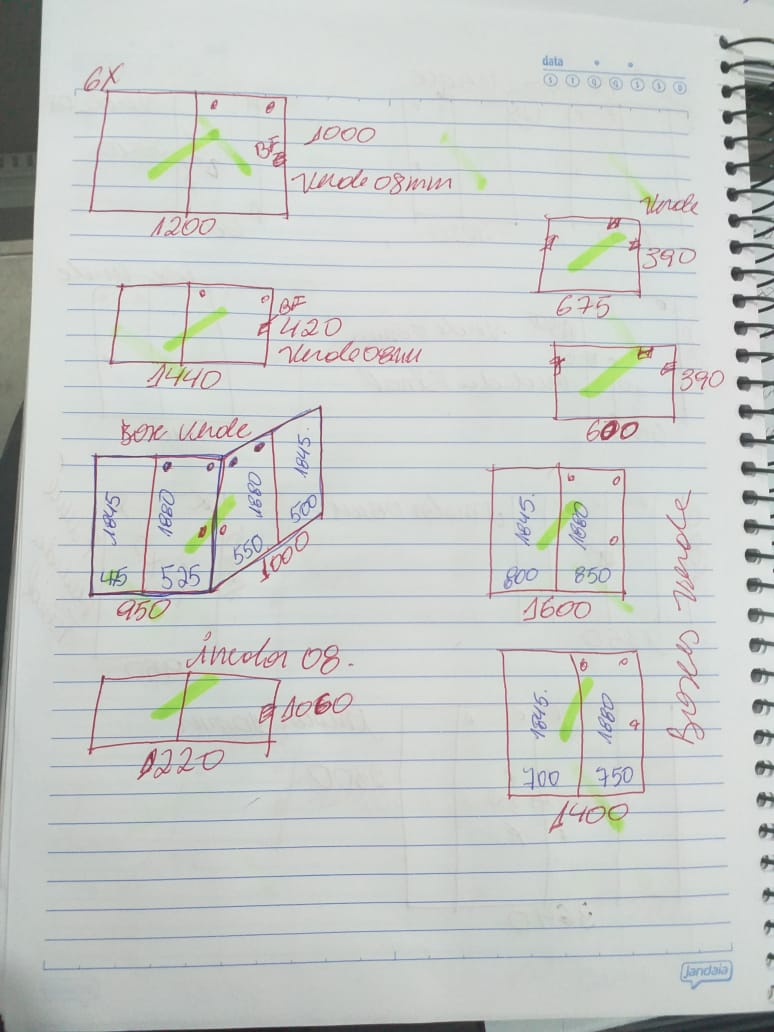 data
S T Q Q S S D
6X
1000
BF
Verde 08mm
1200
Verde
390
675
BF
420
Verde 08mm
1440
390
600
Box Verde
1845
1880
1880
1845.
45
525
550
500
950
1000
1845.
1880
800
850
1600
Incolor 08.
1060
1220
1845.
1880
700
750
1400
Boxes Verde
jandaia